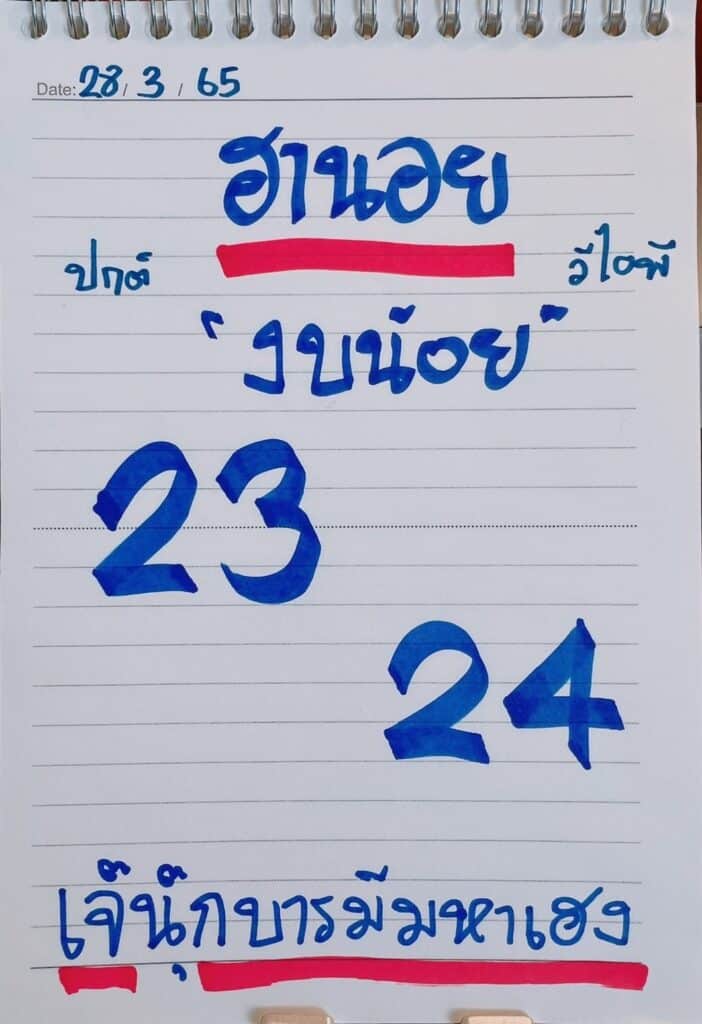 Date: 28 / 3 / 65
ฮานอย
ปกติ วีไอพี
"งบน้อย"
23
24
เจ๊นุ๊กบารมีมหาเฮง